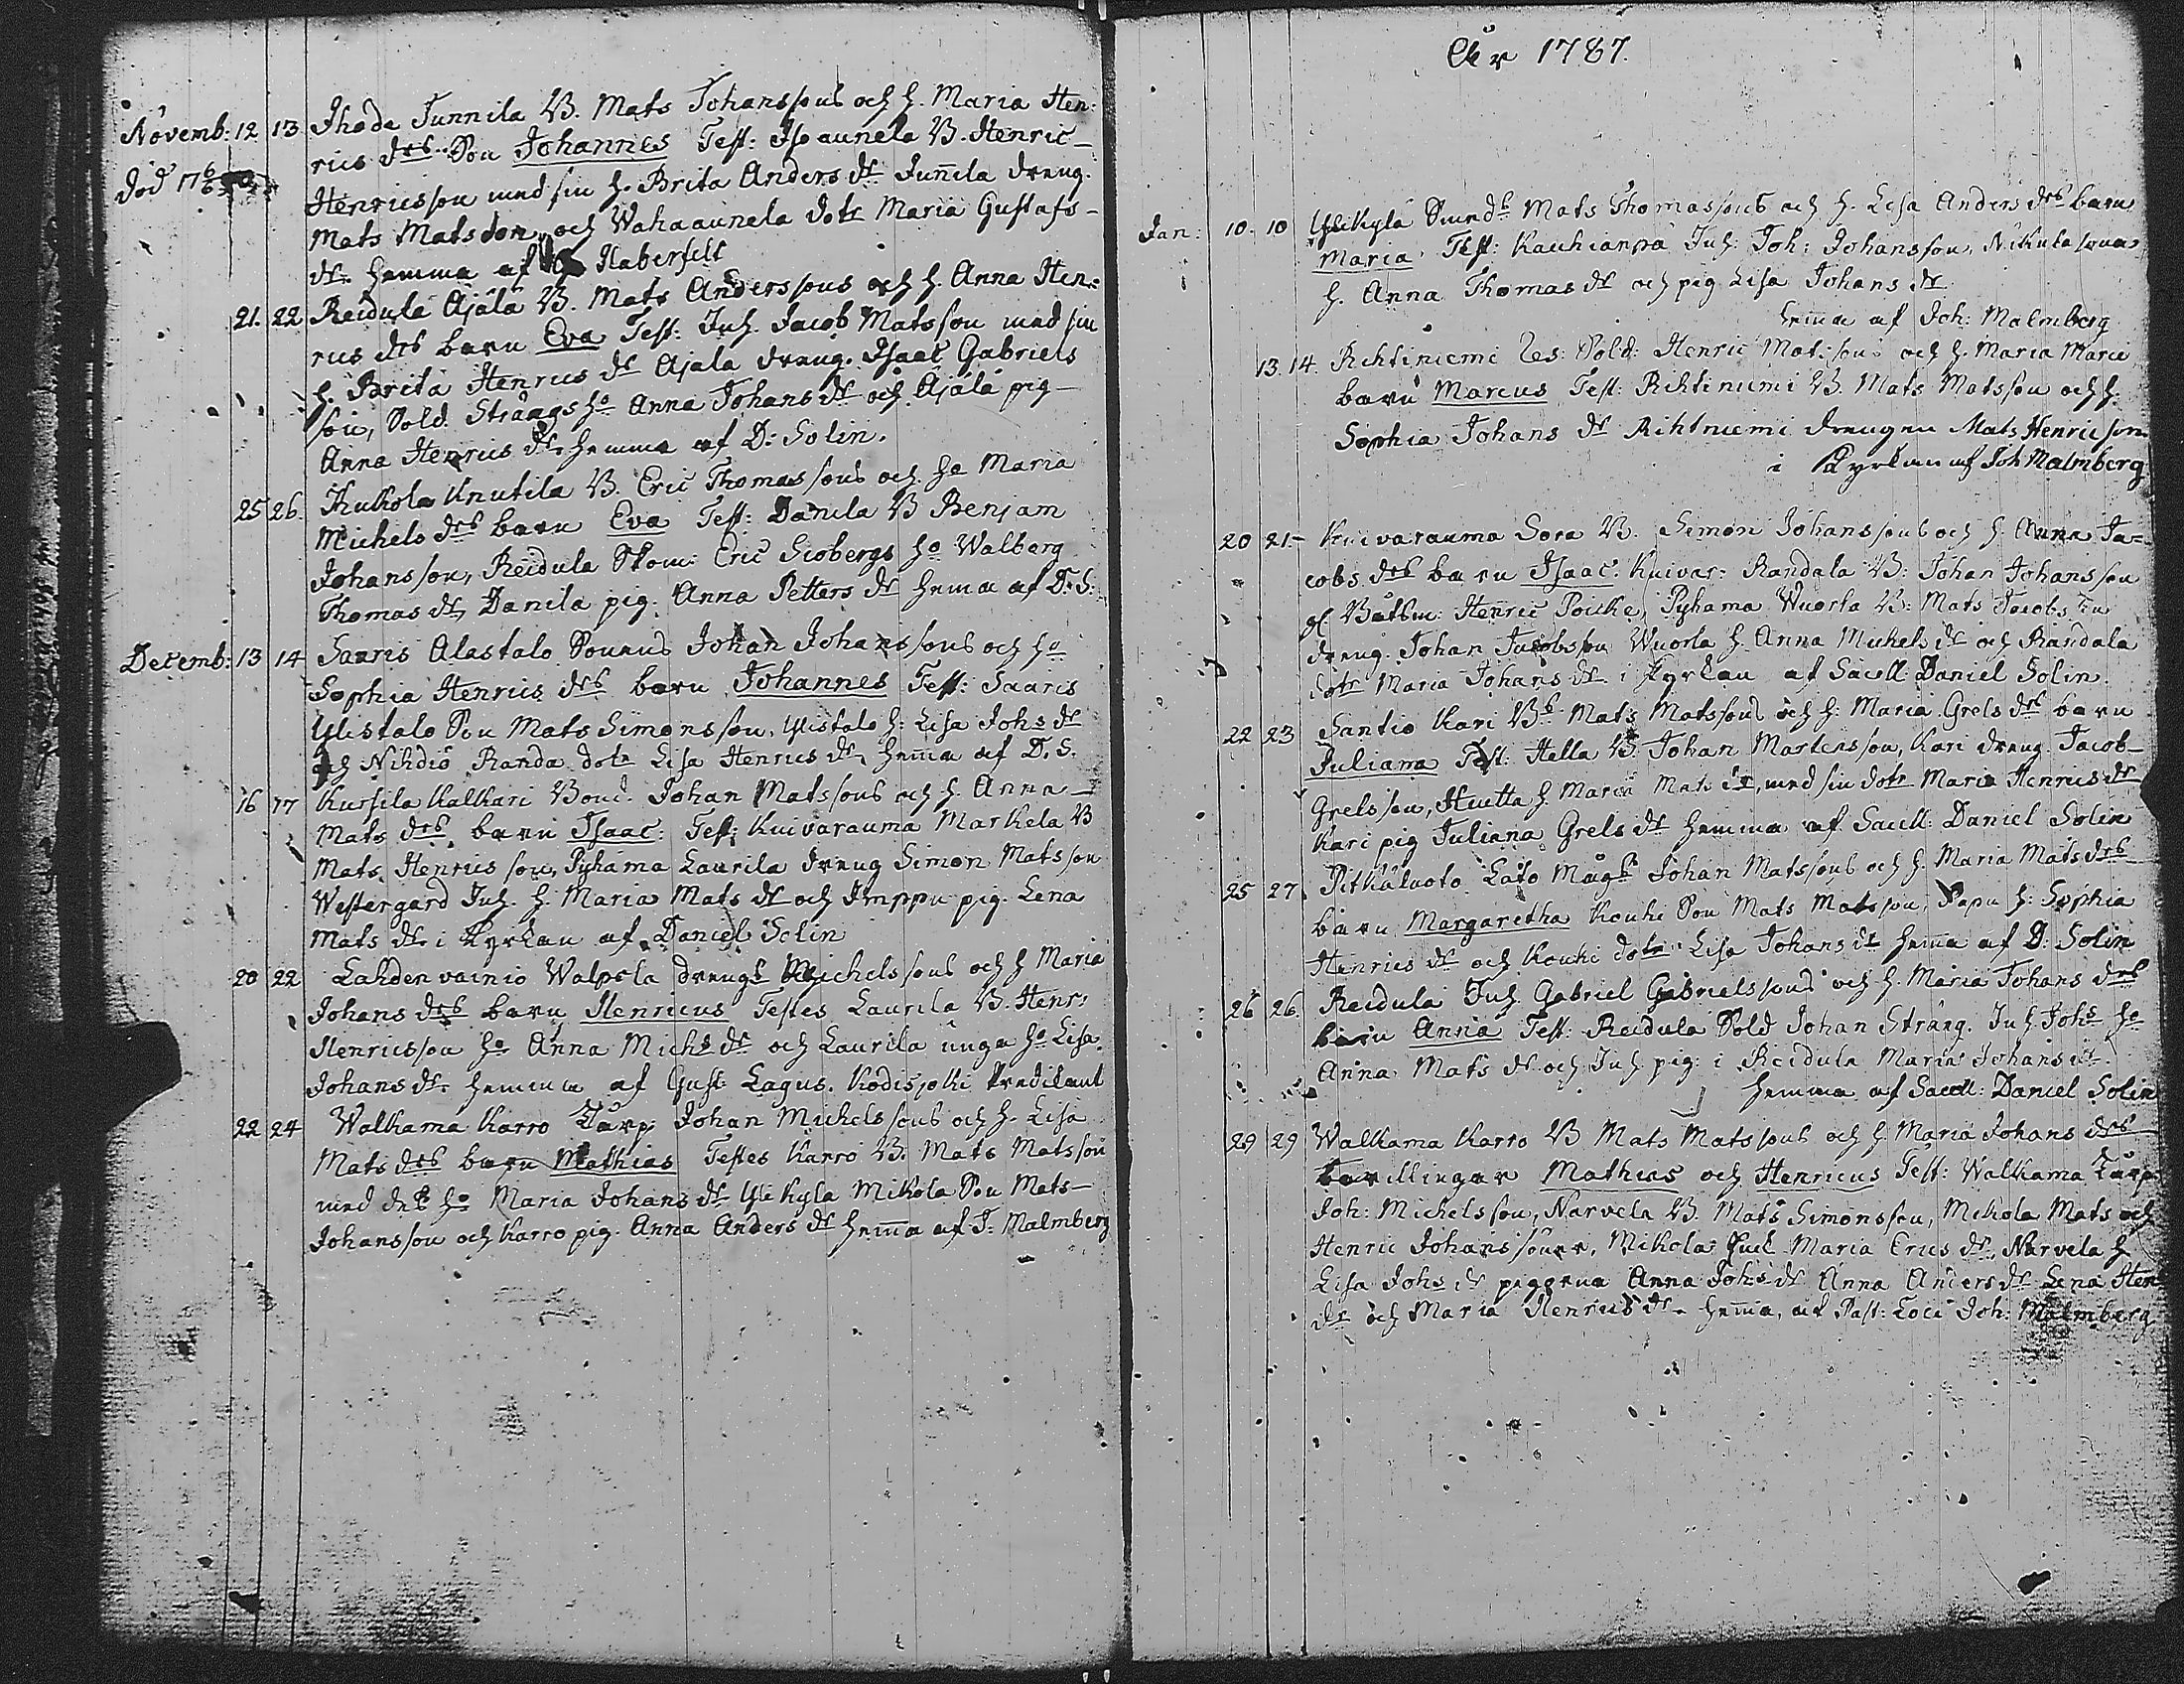 Novemb: 12 13 Ihode Junnila B. Mats Johanssons och h. Maria Hen-
rics drs Son Johannes Test: Isoaunela B. Henric
död Henricsson med sin h. Brita Anders dr Juñila dreng.
Mats Matsson och Wahaaunela dotr Maria Gustafs-
dr. hemma af Haberfelt
21. 22 Reidula Äjälä B. Mats Anderssons och h. Anna Hen-
rics drs barn Eva Test: Inh. Jacob Matsson med sin
h. Brita Henrics dr Äjälä dreng. Isaac Gabriels
son, Sold. Strångs ho Anna Johans dr och Äjälä pig-
Anna Henrics dr. hemma af D: Solin.
25 26. Kukola Knutila B. Eric Thomassons och ho Maria
Michels drs barn Eva Test: Danila B Benjam
Johansson, Reidula Skom: Eric Siobergs ho Walberg
Thomas dr, Danila pig. Anna Petters dr hema af D: S:
Decemb: 13 14 Saaris Alastalo Sonens Johan Johanssons och ho
Sophia Henrics drs barn Johannes Test: Saaris
Ylistalo Son Mats Simonsson, Ylistalo h: Lisa Johs dr
och Nihdiö Randa dotr Lisa Henrics dr. heṁa af D. S.
16 17 Kursila Kalkari Bond. Johan Matssons och h. Anna
Mats drs barn Isaac: Test: Kuivarauma Markela B
Mats Henricsson, Pyhäma Laurila dreng Simon Matsson
Westergard Inh. h. Maria Mats dr och Imppu pig. Lena
Mats dr. i Kyrkan af Daniel Solin
20 22 Lahdenvainio Walpola drengs Michelssons och h Maria
Johans drs barn Henricus Testes Laurila B. Henr:
Henricsson ho Anna Michs dr och Laurila unga ho Lisa
Johans dr. hemma af Gust: Lagus. Kodisjoki Predikant
22 24 Walkama Karro Torp: Johan Michelssons och h. Lisa
Mats drs barn Mathias Testes Karro B. Mats Matsson
med des ho Maria Johans dr Ylikyla Mikola Son Mats-
Johansson och Karro pig. Anna Anders dr heṁa af J: Malmberg
År 1787.
Jan: 10. 10 Ylikylä Smeds Mats Thomassons och h. Lisa Anders drs barn
Maria. Test: Kauhianpä Inh: Joh: Johansson, Nikula sona
h. Anna Thomas dr och pig Lisa Johans dr
heṁa af Joh: Malmberg
13. 14. Rihtiniemi Res: Sold: Henric Matssons och h. Maria Marci
barn Marcus Test: Rihtiniemi B. Mats Matsson och h.
Sophia Johans dr Rihtniemi drengen Mats Henricson
i Kyrkan af Joh Malmberg
20 21. Kuivarauma Sora B. Simon Johanssons och h. Anna Ja-
cobs drs barn Isaac. Kuivar: Randala B: Johan Johansson
gl Båtsm: Henric Poicke, Pyhama Wuorla B: Mats Jacobsson
dreng. Johan Jacobsson Wuorla h. Anna Mickels dr och Randala
dotr Maria Johans dr. i Kyrkan af Sacell Daniel Solin.
22 23 Santio Kari Bs Mats Matssons och h: Maria Grels drs barn
Juliana Test: Hella B. Johan Martensson, Kari dreng. Jacob-
Grelsson, Huitta h. Maria Mats dr, med sin dotr Maria Henrics dr
Kari pig Juliana Grels dr hemma af Sacell: Daniel Solin
25 27. Pitkäluoto Lato Mågs Johan Matssons och h. Maria Mats drs
barn Margaretha Kouhi Son Mats Matsson, Papu h: Sophia
Henrics dr och Kouhi dotr Lisa Johans dr heṁa af D: Solin
26 26. Reidula Inh. Gabriel Gabrielssons och h. Maria Johans drs
barn Anna Test: Reidula Sold Johan Strång. Inh Johs ho
Anna Mats dr och Inh pig: i Reidula Maria Johans dr.
hemma af Sacell: Daniel Solin
29 29 Walkama Karro B Mats Matssons och h Maria Johans drs
tvillingar Mathias och Henricus Test: Walkama Torp:
Joh: Michelsson, Narvela B. Mats Simonsson, Mikola Mats och
Henric Johanssöner, Mikola Maria Erics dr, Narvela h
Lisa Johs dr pigorna Anna Johs dr Anna Anders dr Lena Hen
dr och Maria Henrics dr. heṁa, af Past: Loci Joh: Malmberg